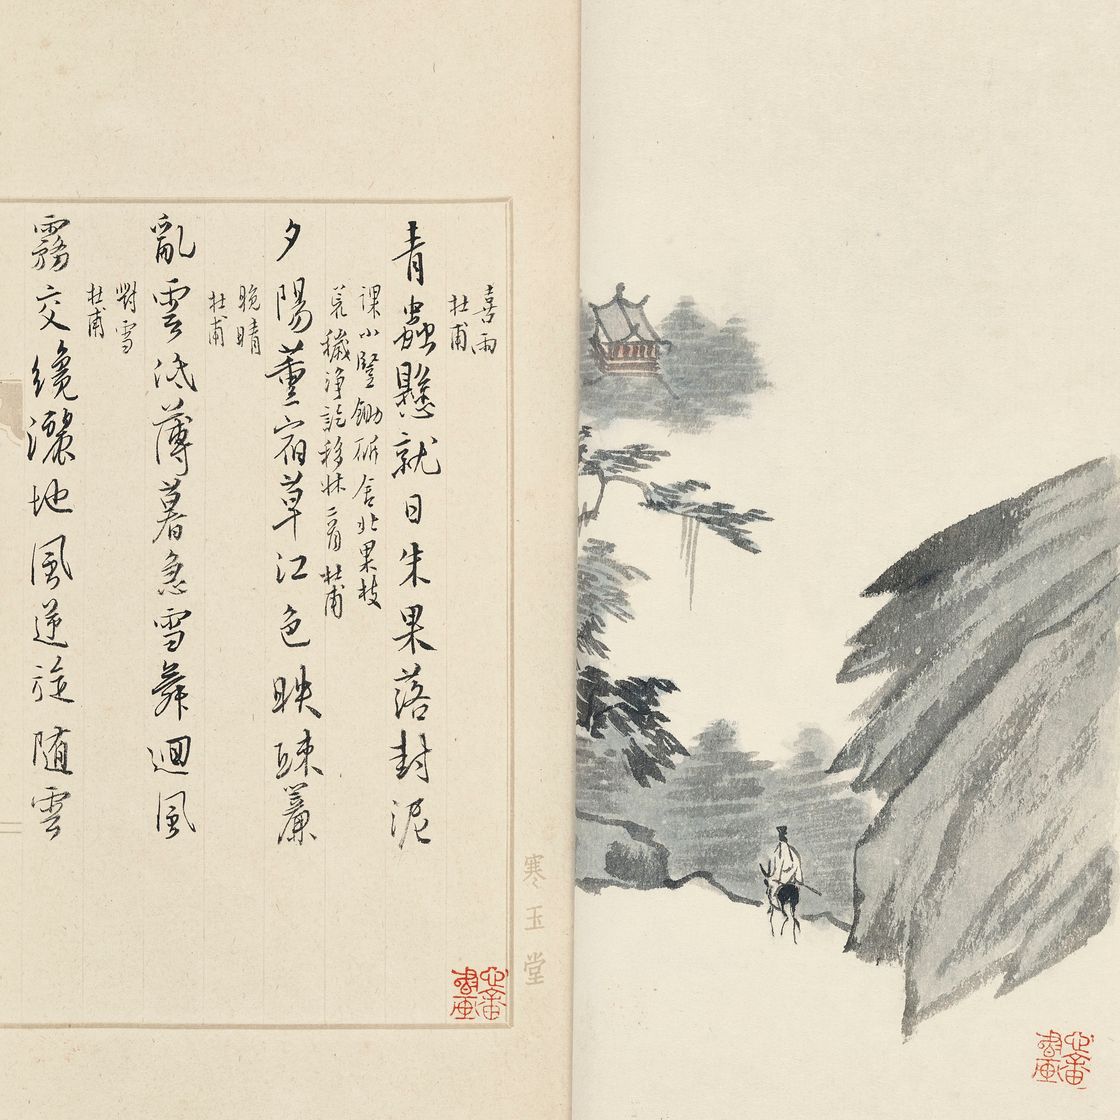 喜雨
杜甫
青蟲懸就日朱果落封泥
課小豎鋤斫舍北果枝
荒穢淨訖移牀二首 杜甫
夕陽薰宿草江色映疎簾
晚晴
杜甫
亂雲低薄暮急雪舞迴風
對雪
杜甫
霧交纔灑地風逆旋隨雲
寒玉堂
心畬書画
心畬書画